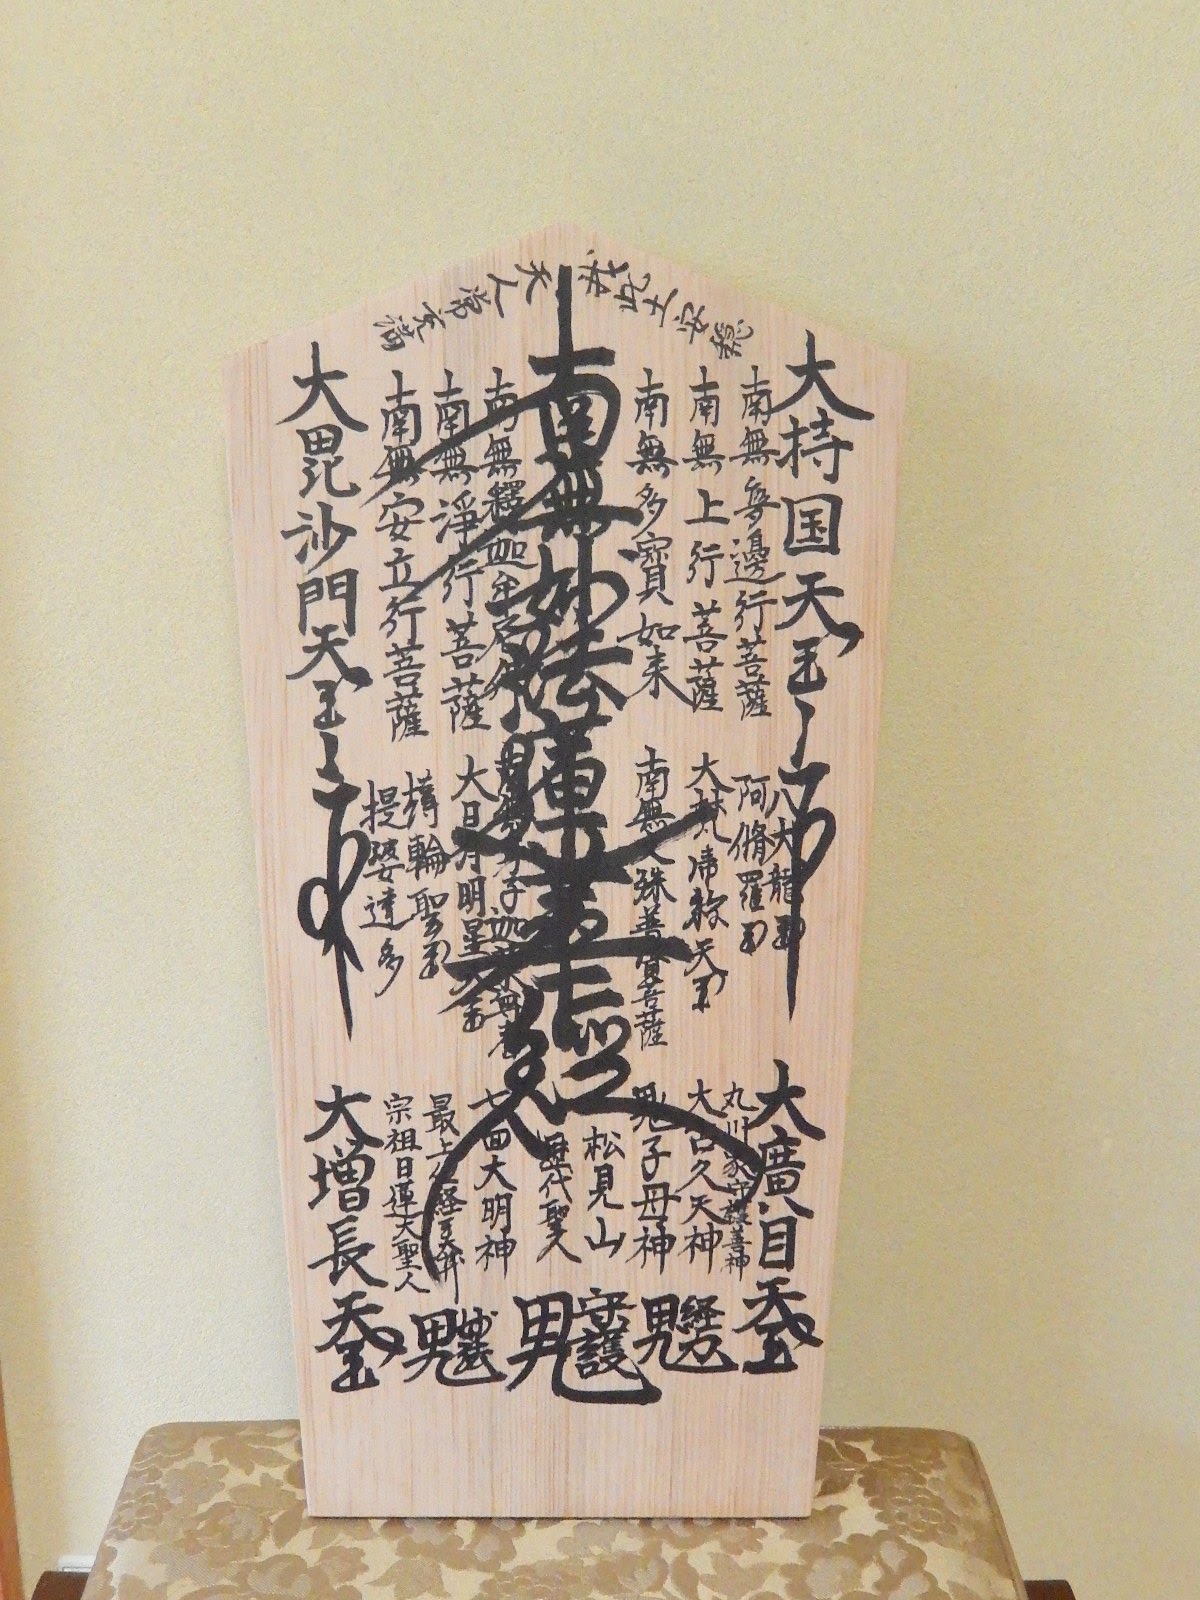 大持国天王
南無無邊行菩薩
南無上行菩薩
南無多寳如来
南無妙法蓮華経
南無釋迦牟尼佛
南無淨行菩薩
南無安立行菩薩
大毘沙門天王
八大龍王
阿脩羅王
大梵帝釈天王
南無文殊普賢菩薩
大日月明星天王
轉輪聖王
提婆達多
大廣目天王
丸川家守護善神
大古久天神
鬼子母神
松見山
歴代聖人
七面大明神
最上位経王大菩薩
宗祖日蓮大聖人
大増長天王
経力
守護
妙法